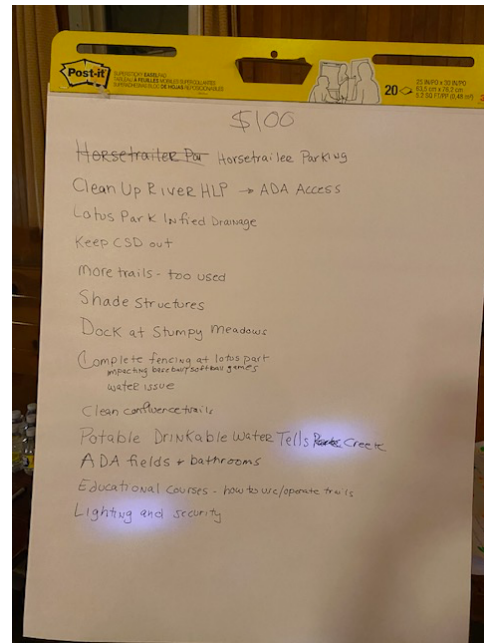 Post-it
SUPERSTICKY EASEL PAD
20
25 IN/PO x 30 IN/PO
63,5 cm x 76,2 cm
5.2 SQ FT/PP (0,48 m²)
$100
Horsetrailer Par Horsetrailer Parking
Clean Up River HLP → ADA Access
Lotus Park Infied Drainage
Keep CSD out
more trails - too used
Shade Structures
Dock at Stumpy Meadows
Complete fencing at lotus part
impacting baseball/softball games
water issue
Clean confluence trails
Potable Drinkable Water Tells Creek
ADA fields + bathrooms
Educational courses - how to use/operate trails
Lighting and security